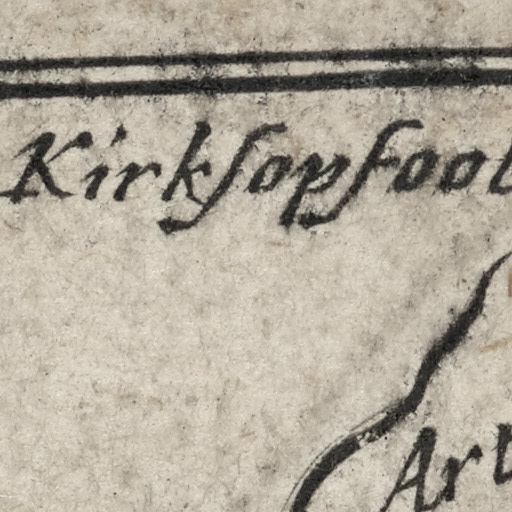 Kirkſopfoot
Art